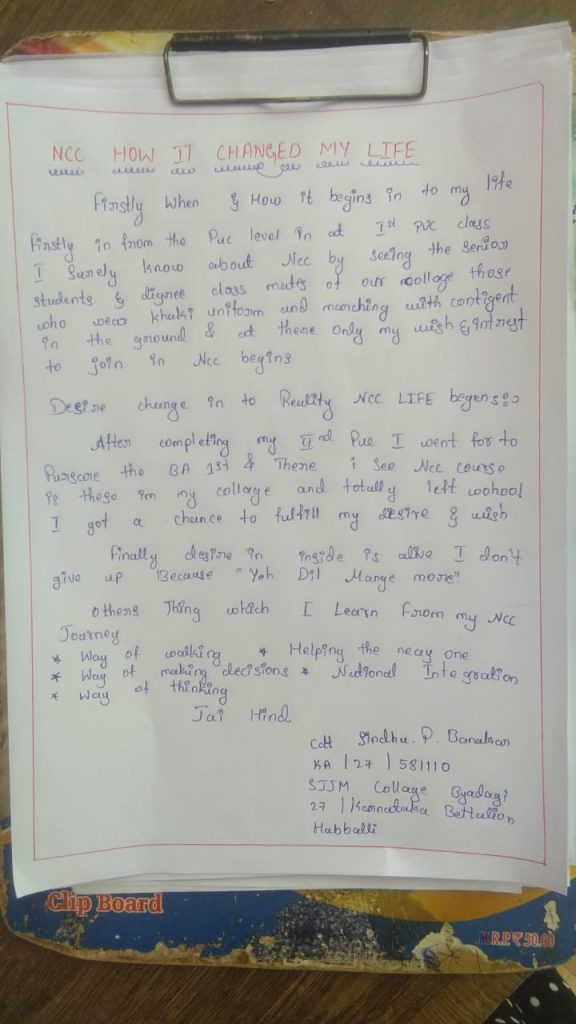 NCC HOW IT CHANGED MY LIFE
Firstly When & How it begins in to my life
Firstly in from the Puc level in at Ist PUC class
I surely know about Ncc by seeing the senior
students & digree class mates of our collage those
who wear khaki uniform and marching with contigent
in the ground & at there only my wish & intrest
to join in Ncc begins
Desire change in to Reality NCC LIFE begens:-
After completing my IInd Puc I went for to
Purscore the BA 1st & There i see Ncc course
is these in my collage and totally left wohoo!
I got a chance to fulfill my desire & wish
Finally desire in inside is alive I don't
give up Because "Yeh Dil Mange more"
others Thing which I Learn From my NCC
Journey
* Way of walking * Helping the neay one
* Way of making decisions * National Integration
* Way of thinking
Jai Hind
Cdt Sindhu. P. Banakar
KA | 27 | 581110
SJJM Collage Byadagi
27 | Karnataka Bettalion
Hubballi
Clip Board
M.R.P.₹50.00